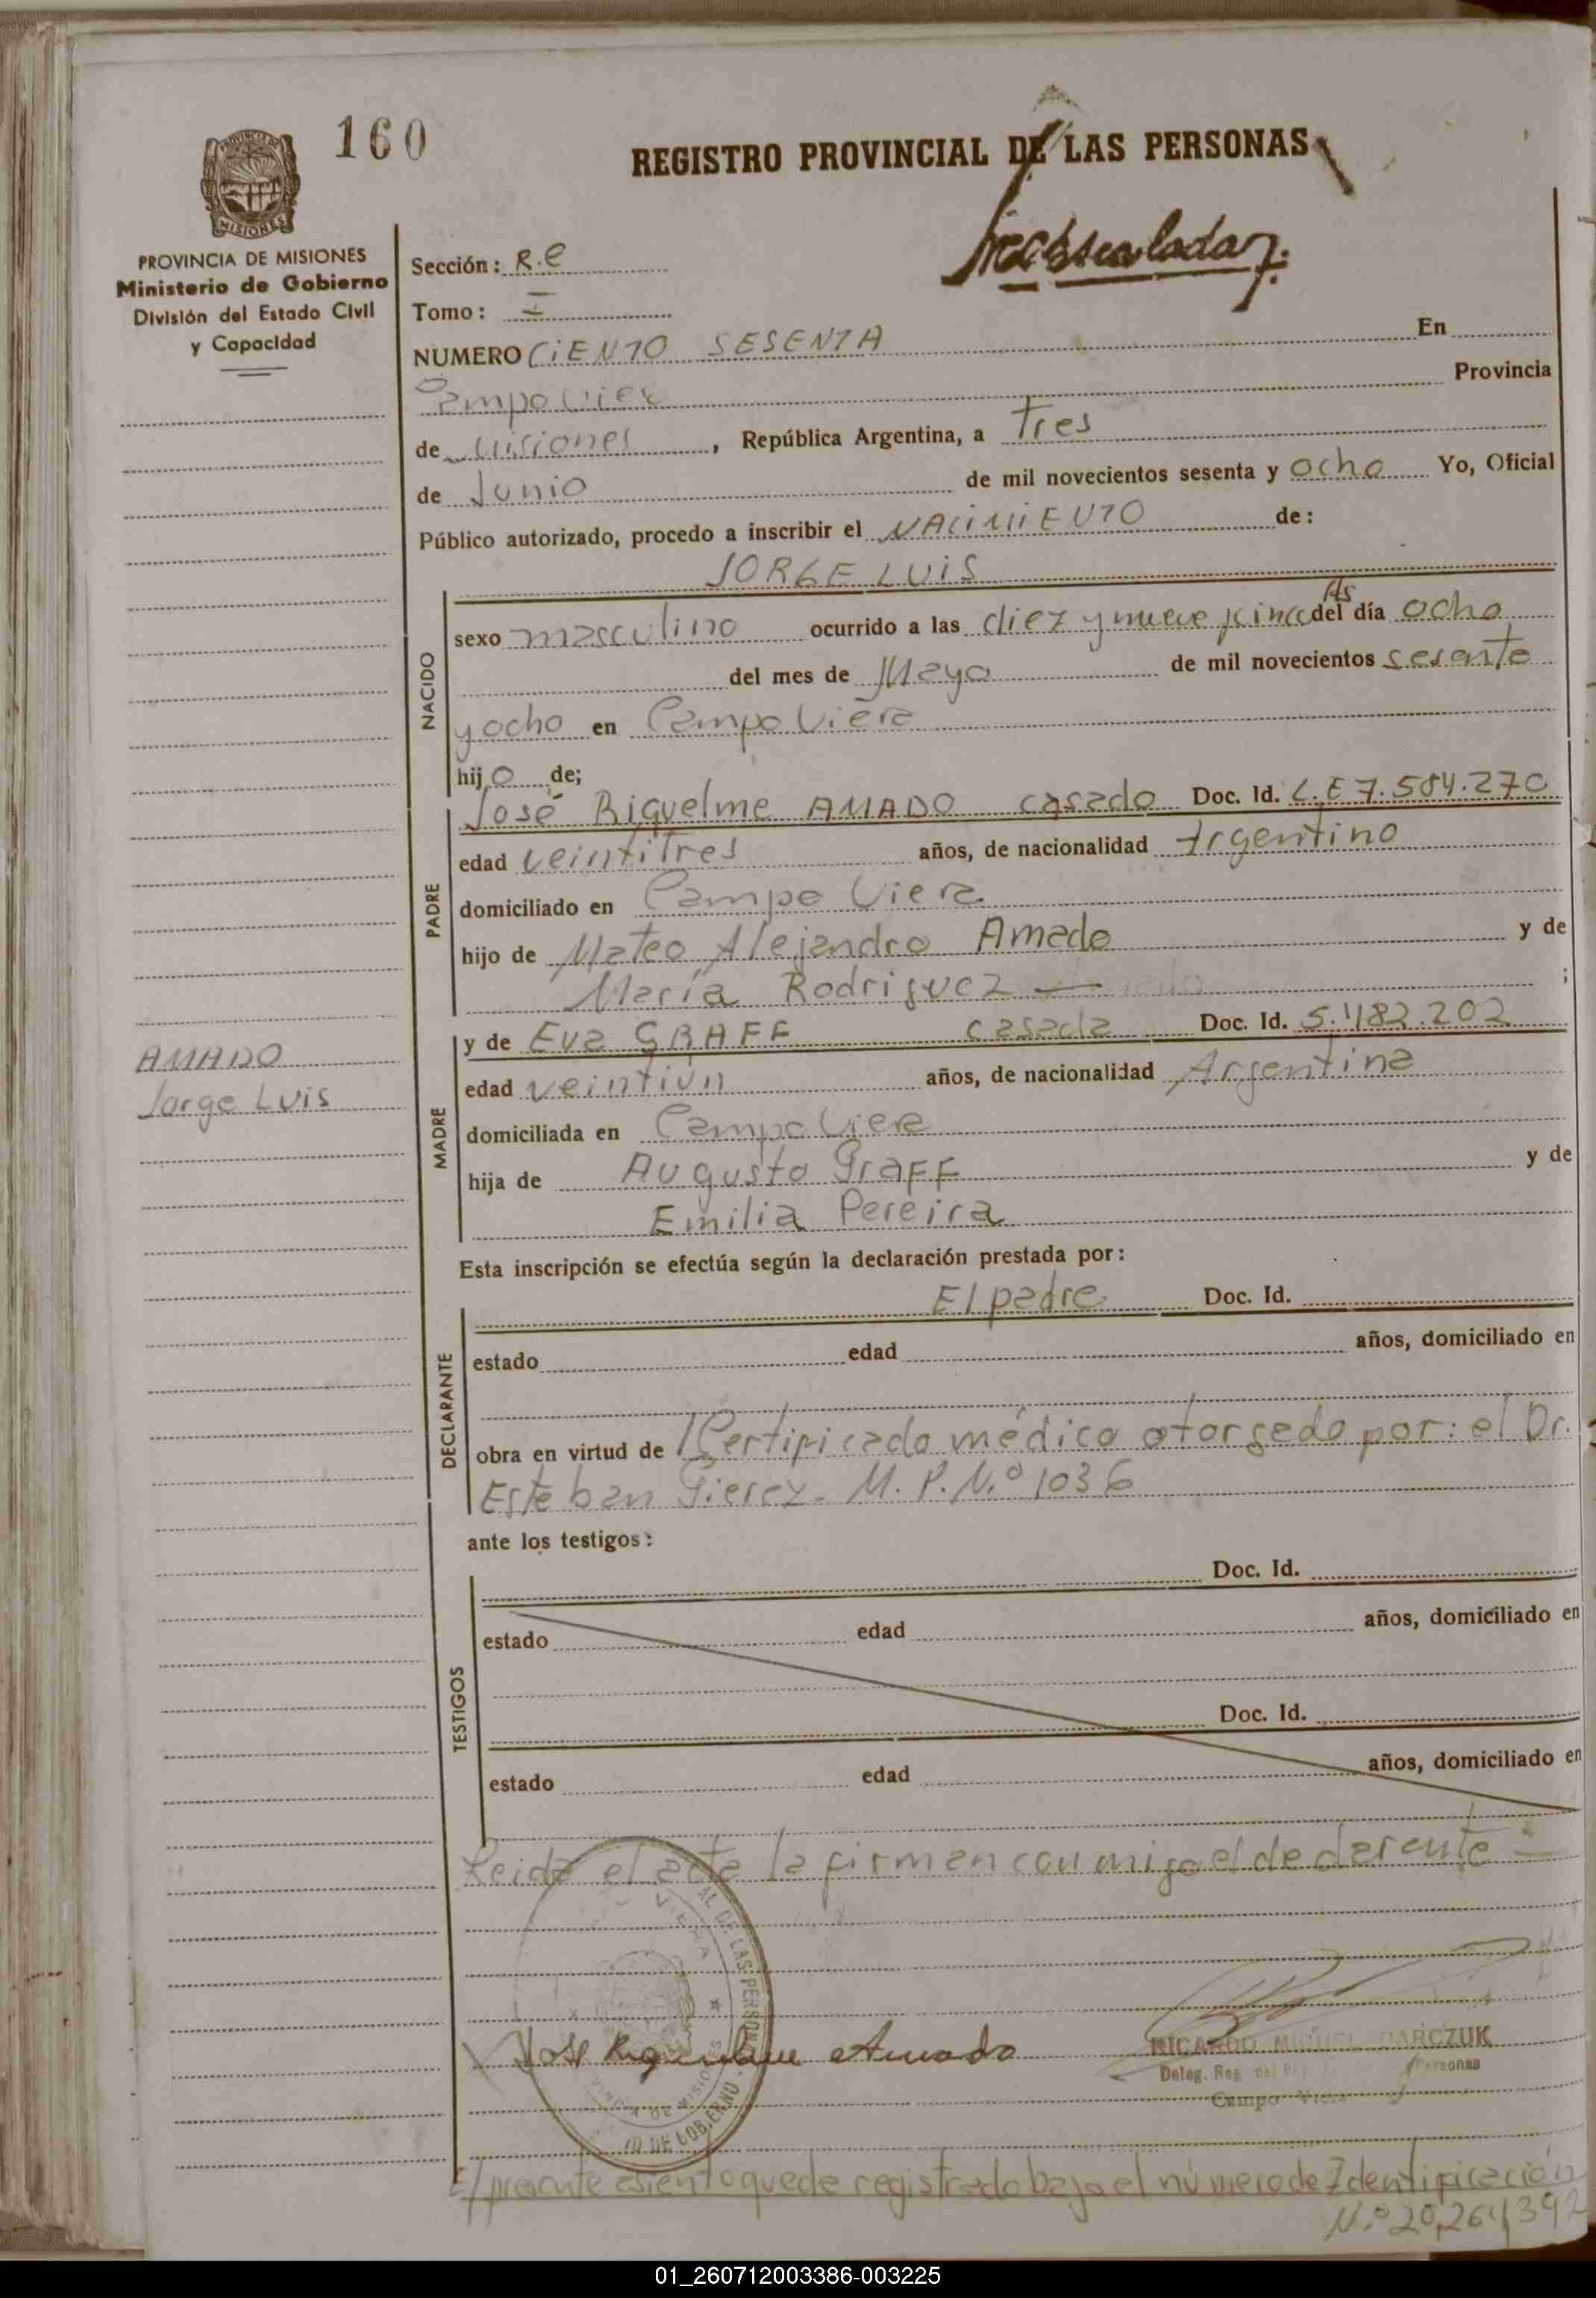 160
REGISTRO PROVINCIAL DE LAS PERSONAS
PROVINCIA DE MISIONES
Ministerio de Gobierno
División del Estado Civil
y Capacidad
Sección: R.C
Tomo: I
NUMERO CIENTO SESENTA En
Campo Viera Provincia
de Misiones, República Argentina, a Tres
de Junio de mil novecientos sesenta y ocho Yo, Oficial
Público autorizado, procedo a inscribir el NACIMIENTO de:
JORGE LUIS
NACIDO
sexo masculino ocurrido a las diez y nueve y cinco Hs del día ocho
del mes de Mayo de mil novecientos sesenta
y ocho en Campo Viera
hijo de;
PADRE
José Riquelme AMADO casado Doc. Id. L.E 7.584.270
edad veintitres años, de nacionalidad Argentino
domiciliado en Campo Viera
hijo de Mateo Alejandro Amado y de
María Rodriguez ;
MADRE
y de Eva GRAFF casada Doc. Id. 5.482.202
edad veintiún años, de nacionalidad Argentina
domiciliada en Campo Viera
hija de Augusto Graff y de
Emilia Pereira
AMADO
Jorge Luis
Esta inscripción se efectúa según la declaración prestada por:
DECLARANTE
El padre Doc. Id.
estado edad años, domiciliado en
obra en virtud de 1 Certificado médico otorgado por: el Dr.
Esteban M. P. N.º 1036
ante los testigos:
TESTIGOS
Doc. Id.
estado edad años, domiciliado en
Doc. Id.
estado edad años, domiciliado en
Leida el acta la firman conmigo el declarente
José Riquelme Amado
RICARDO MIGUEL DARCZUK
Deleg. Reg del Personas
Campo Viera
El presente asiento queda registrado bajo el número de Identificación
N.º 20,264,392
01_260712003386-003225